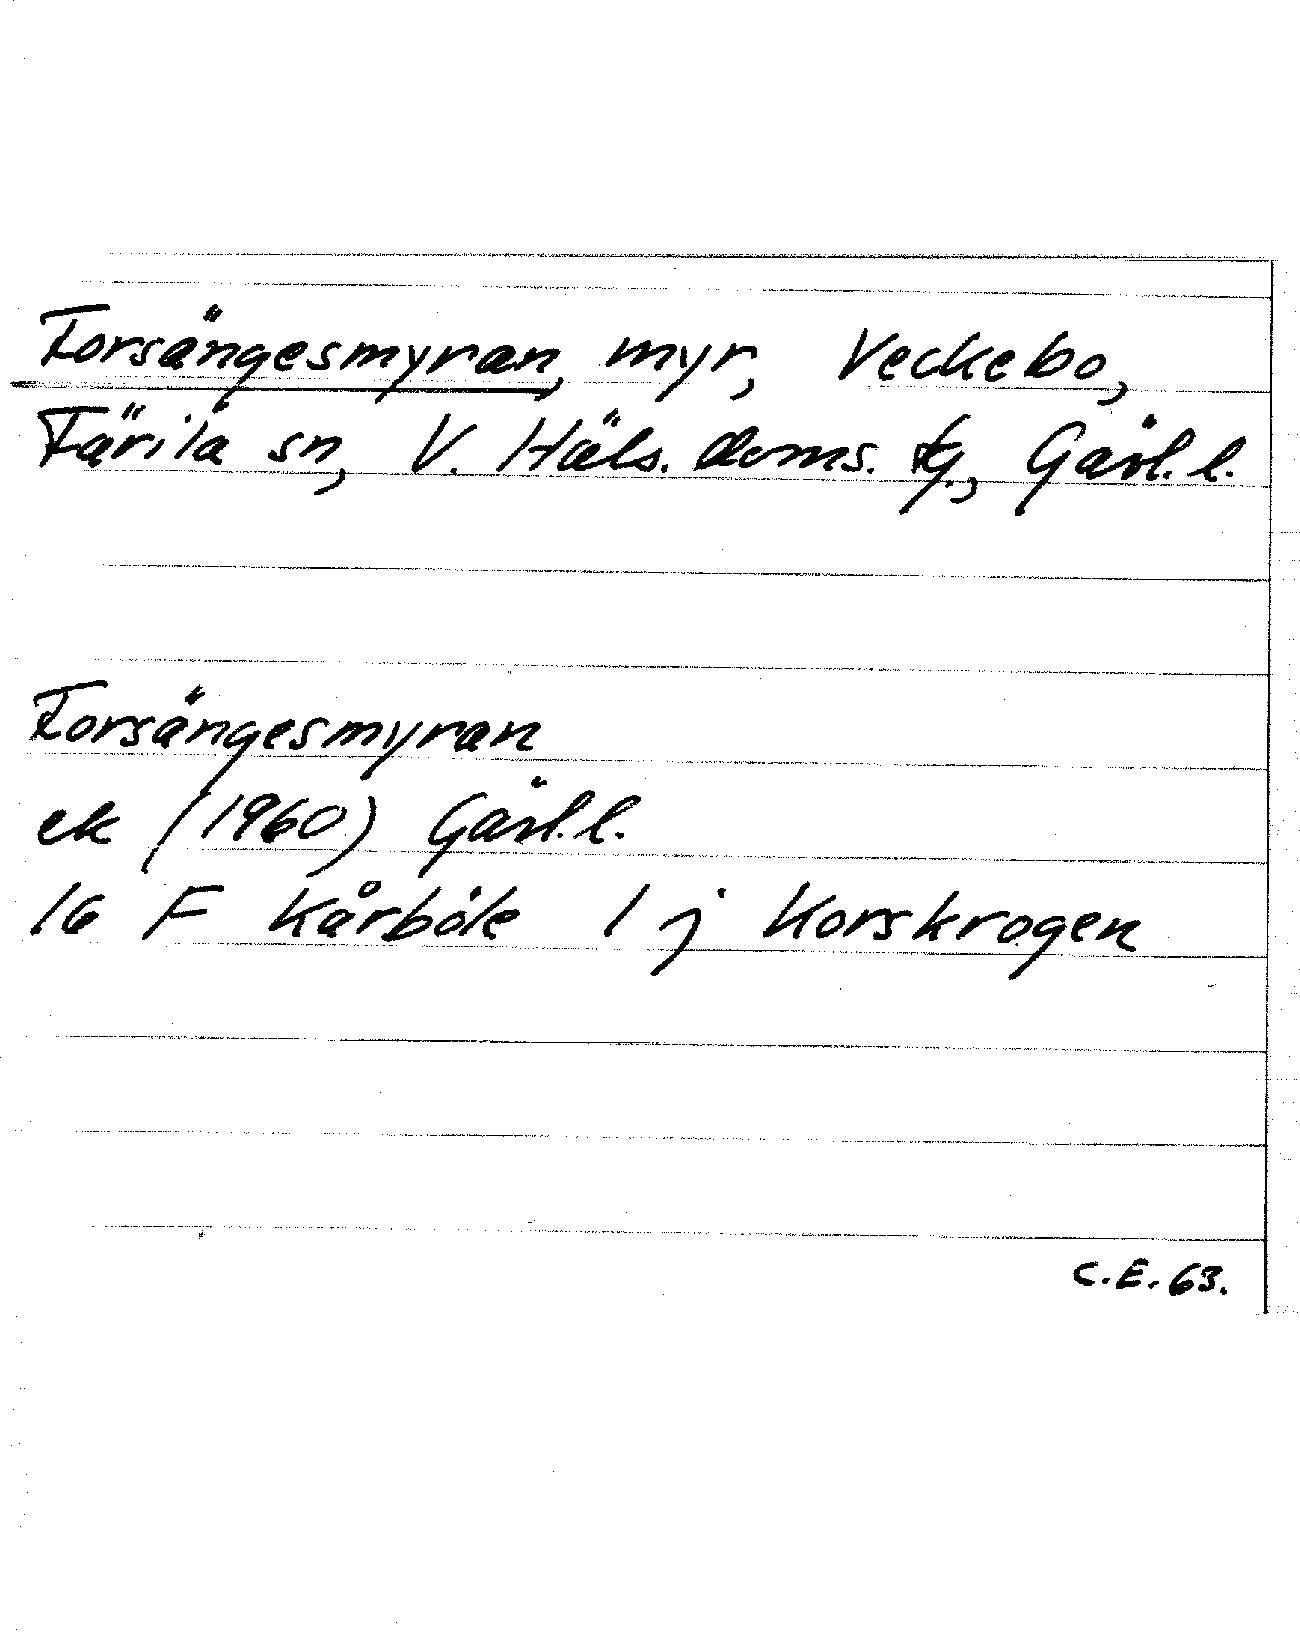 Forsängesmyran, myr, Veckebo,
Färila sn, V. Häls. doms. tg., Gävl. l.
Forsängesmyran
ek (1960) Gävl. l.
16 F Kårböle 1 j Korskrogen
C.E. 63.